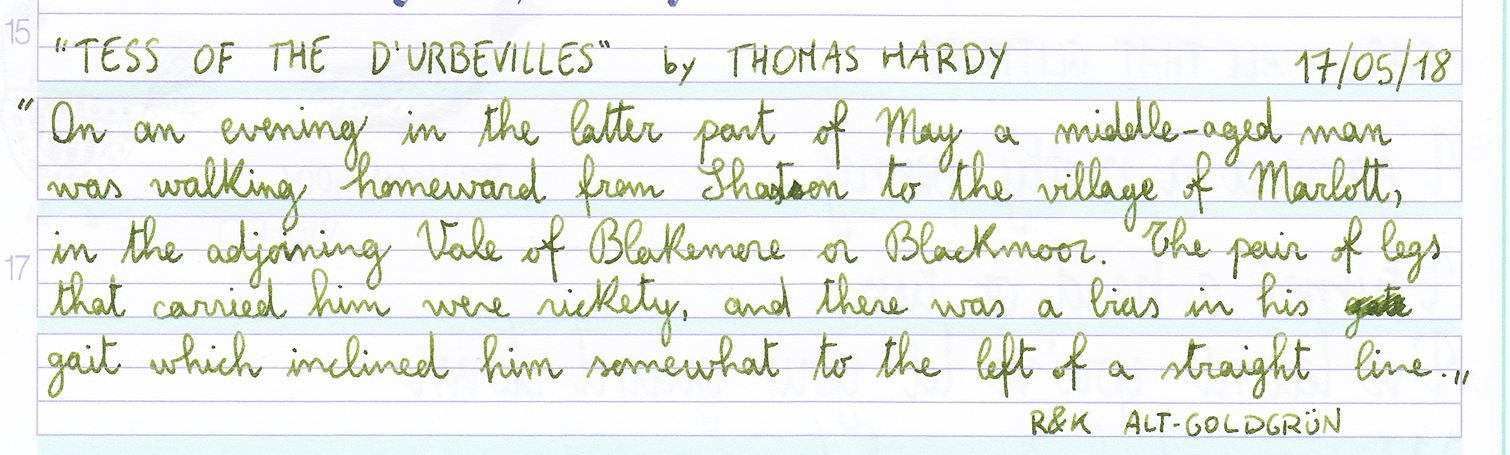 15
"TESS OF THE D'URBEVILLES" by THOMAS HARDY 17/05/18
"On an evening in the latter part of May a middle-aged man
was walking homeward from Shaston to the village of Marlott,
in the adjoining Vale of Blakemore or Blackmoor. The pair of legs
17
that carried him were rickety, and there was a bias in his
gait which inclined him somewhat to the left of a straight line."
R&K ALT-GOLDGRÜN